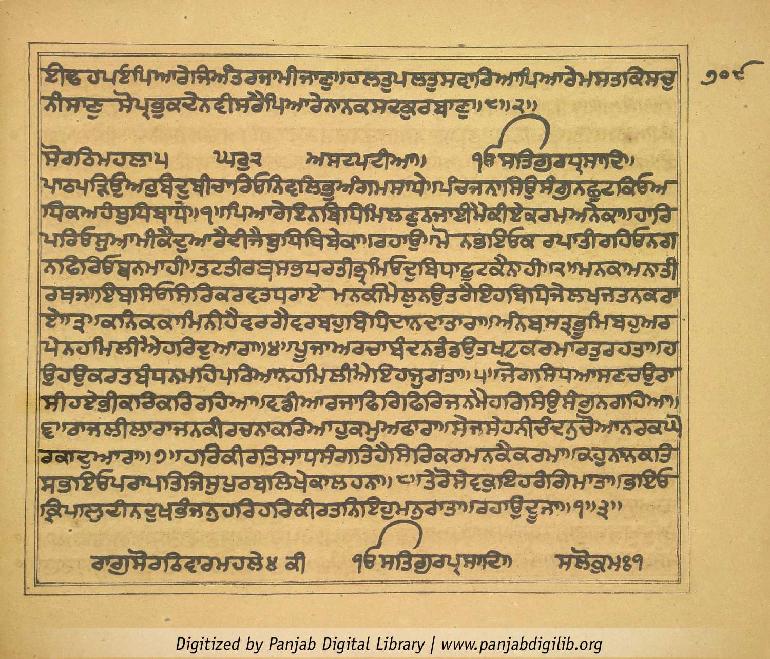 ਈਢ ਹਪਇਪਿਆਰੇਜਿਅੰਤਰਜਾਮੀਜਾਣੁ॥ਹਲਤੁਪਲਤੁਸਵਾਰਿਆਪਿਆਰੇਮਸਤਕਿਸਚੁ ੭੦੯
ਨੀਸਾਣੁ ਸੋਪ੍ਰਭੁਕਦੇਨਵੀਸਰੈਪਿਆਰੇਨਾਨਕਸਦਕੁਰਬਾਣੁ॥੮॥੨॥
ਸੋਰਠਿਮਹਲਾ੫ ਘਰੁ੨ ਅਸਟਪਦੀਆ॥ ੴਸਤਿਗੁਰਪ੍ਰਸਾਦਿ॥
ਪਾਠਪੜਿਓਅਰੁਬੇਦੁਬੀਚਾਰਿਓਨਿਵਲਿਭੁਅੰਗਮਸਾਧੇ॥ਪੰਚਜਨਾਸਿਉਸੰਗੁਨਛੁਟਕਿਓਅ
ਧਿਕਅਹੰਬੁਧਿਬਾਧੇ॥੧॥ਪਿਆਰੇਇਨਬਿਧਿਮਿਲਣੁਨਜਾਈਮੈਕੀਏਕਰਮਅਨੇਕਾ॥ਹਾਰਿ
ਪਰਿਓਸੁਆਮੀਕੈਦੁਆਰੈਦੀਜੈਬੁਧਿਬਿਬੇਕਾ॥ਰਹਾਉ॥ਮੋ ਨਭਇਓਕ ਰਪਾਤੀਰਹਿਓਨਗ
ਨਫਿਰਿਓਬਨਮਾਹੀ॥ਤਟਤੀਰਥਸਭਧਰਤੀਭ੍ਰਮਿਓਦੁਬਿਧਾਛੁਟਕੈਨਾਹੀ॥੨॥ਮਨਕਾਮਨਾਤੀ
ਰਥਜਾਇਬਸਿਓਸਿਰਿਕਰਵਤਧਰਾਏ ਮਨਕੀਮੈਲੁਨਉਤਰੈਇਹਬਿਧਿਜੇਲਖਜਤਨਕਰਾ
ਏ॥੩॥ਕਨਿਕਕਾਮਿਨੀਹੈਵਰਗੈਵਰਬਹੁਬਿਧਿਦਾਨਦਾਤਾਰਾ॥ਅੰਨਬਸਤ੍ਰਭੂਮਿਬਹੁਅਰ
ਪੇਨਹਮਿਲੀਐਹਰਿਦੁਆਰਾ॥੪॥ਪੂਜਾਅਰਚਾਬੰਦਨਡੰਡਉਤਖਟੁਕਰਮਾਰਤੁਰਹਤਾ॥ਹ
ਉਹਉਕਰਤਬੰਧਨਮਹਿਪਰਿਆਨਹਮਿਲੀਐਇਹਜੁਗਤਾ॥੫॥ਜੋਗਸਿਧਆਸਣਚਉਰਾ
ਸੀਹਏਭੀਕਰਿਕਰਿਰਹਿਆ॥ਵਡੀਆਰਜਾਫਿਰਿਫਿਰਿਜਨਮੈਹਰਿਸਿਉਸੰਗੁਨਗਹਿਆ॥
੬॥ਰਾਜਲੀਲਾਰਾਜਨਕੀਰਚਨਾਕਰਿਆਹੁਕਮੁਅਫਾਰਾ॥ਸੇਜਸੋਹਨੀਚੰਦਨੁਚੋਆਨਰਕਘੋ
ਰਕਾਦੁਆਰਾ॥੭॥ਹਰਿਕੀਰਤਿਸਾਧਸੰਗਤਿਹੈਸਿਰਿਕਰਮਨਕੈਕਰਮਾ॥ਕਹੁਨਾਨਕਤਿ
ਸੁਭਇਓਪਰਾਪਤਿਜਿਸੁਪੁਰਬਲਿਖੇਕਾਲਹਨਾ॥੮॥ਤੇਰੋਸੇਵਕੁਇਹਰੰਗਿਮਾਤਾ॥ਭਇਓ
ਕ੍ਰਿਪਾਲੁਦੀਨਦੁਖਭੰਜਨੁਹਰਿਹਰਿਕੀਰਤਨਿਇਹੁਮਨੁਰਾਤਾ॥ਰਹਾਉਦੂਜਾ॥੧॥੩॥
ਰਾਗੁਸੋਰਠਿਵਾਰਮਹਲੇ੪ ਕੀ ੴਸਤਿਗੁਰਪ੍ਰਸਾਦਿ॥ ਸਲੋਕੁਮਃ੧
Digitized by Panjab Digital Library | www.panjabdigilib.org